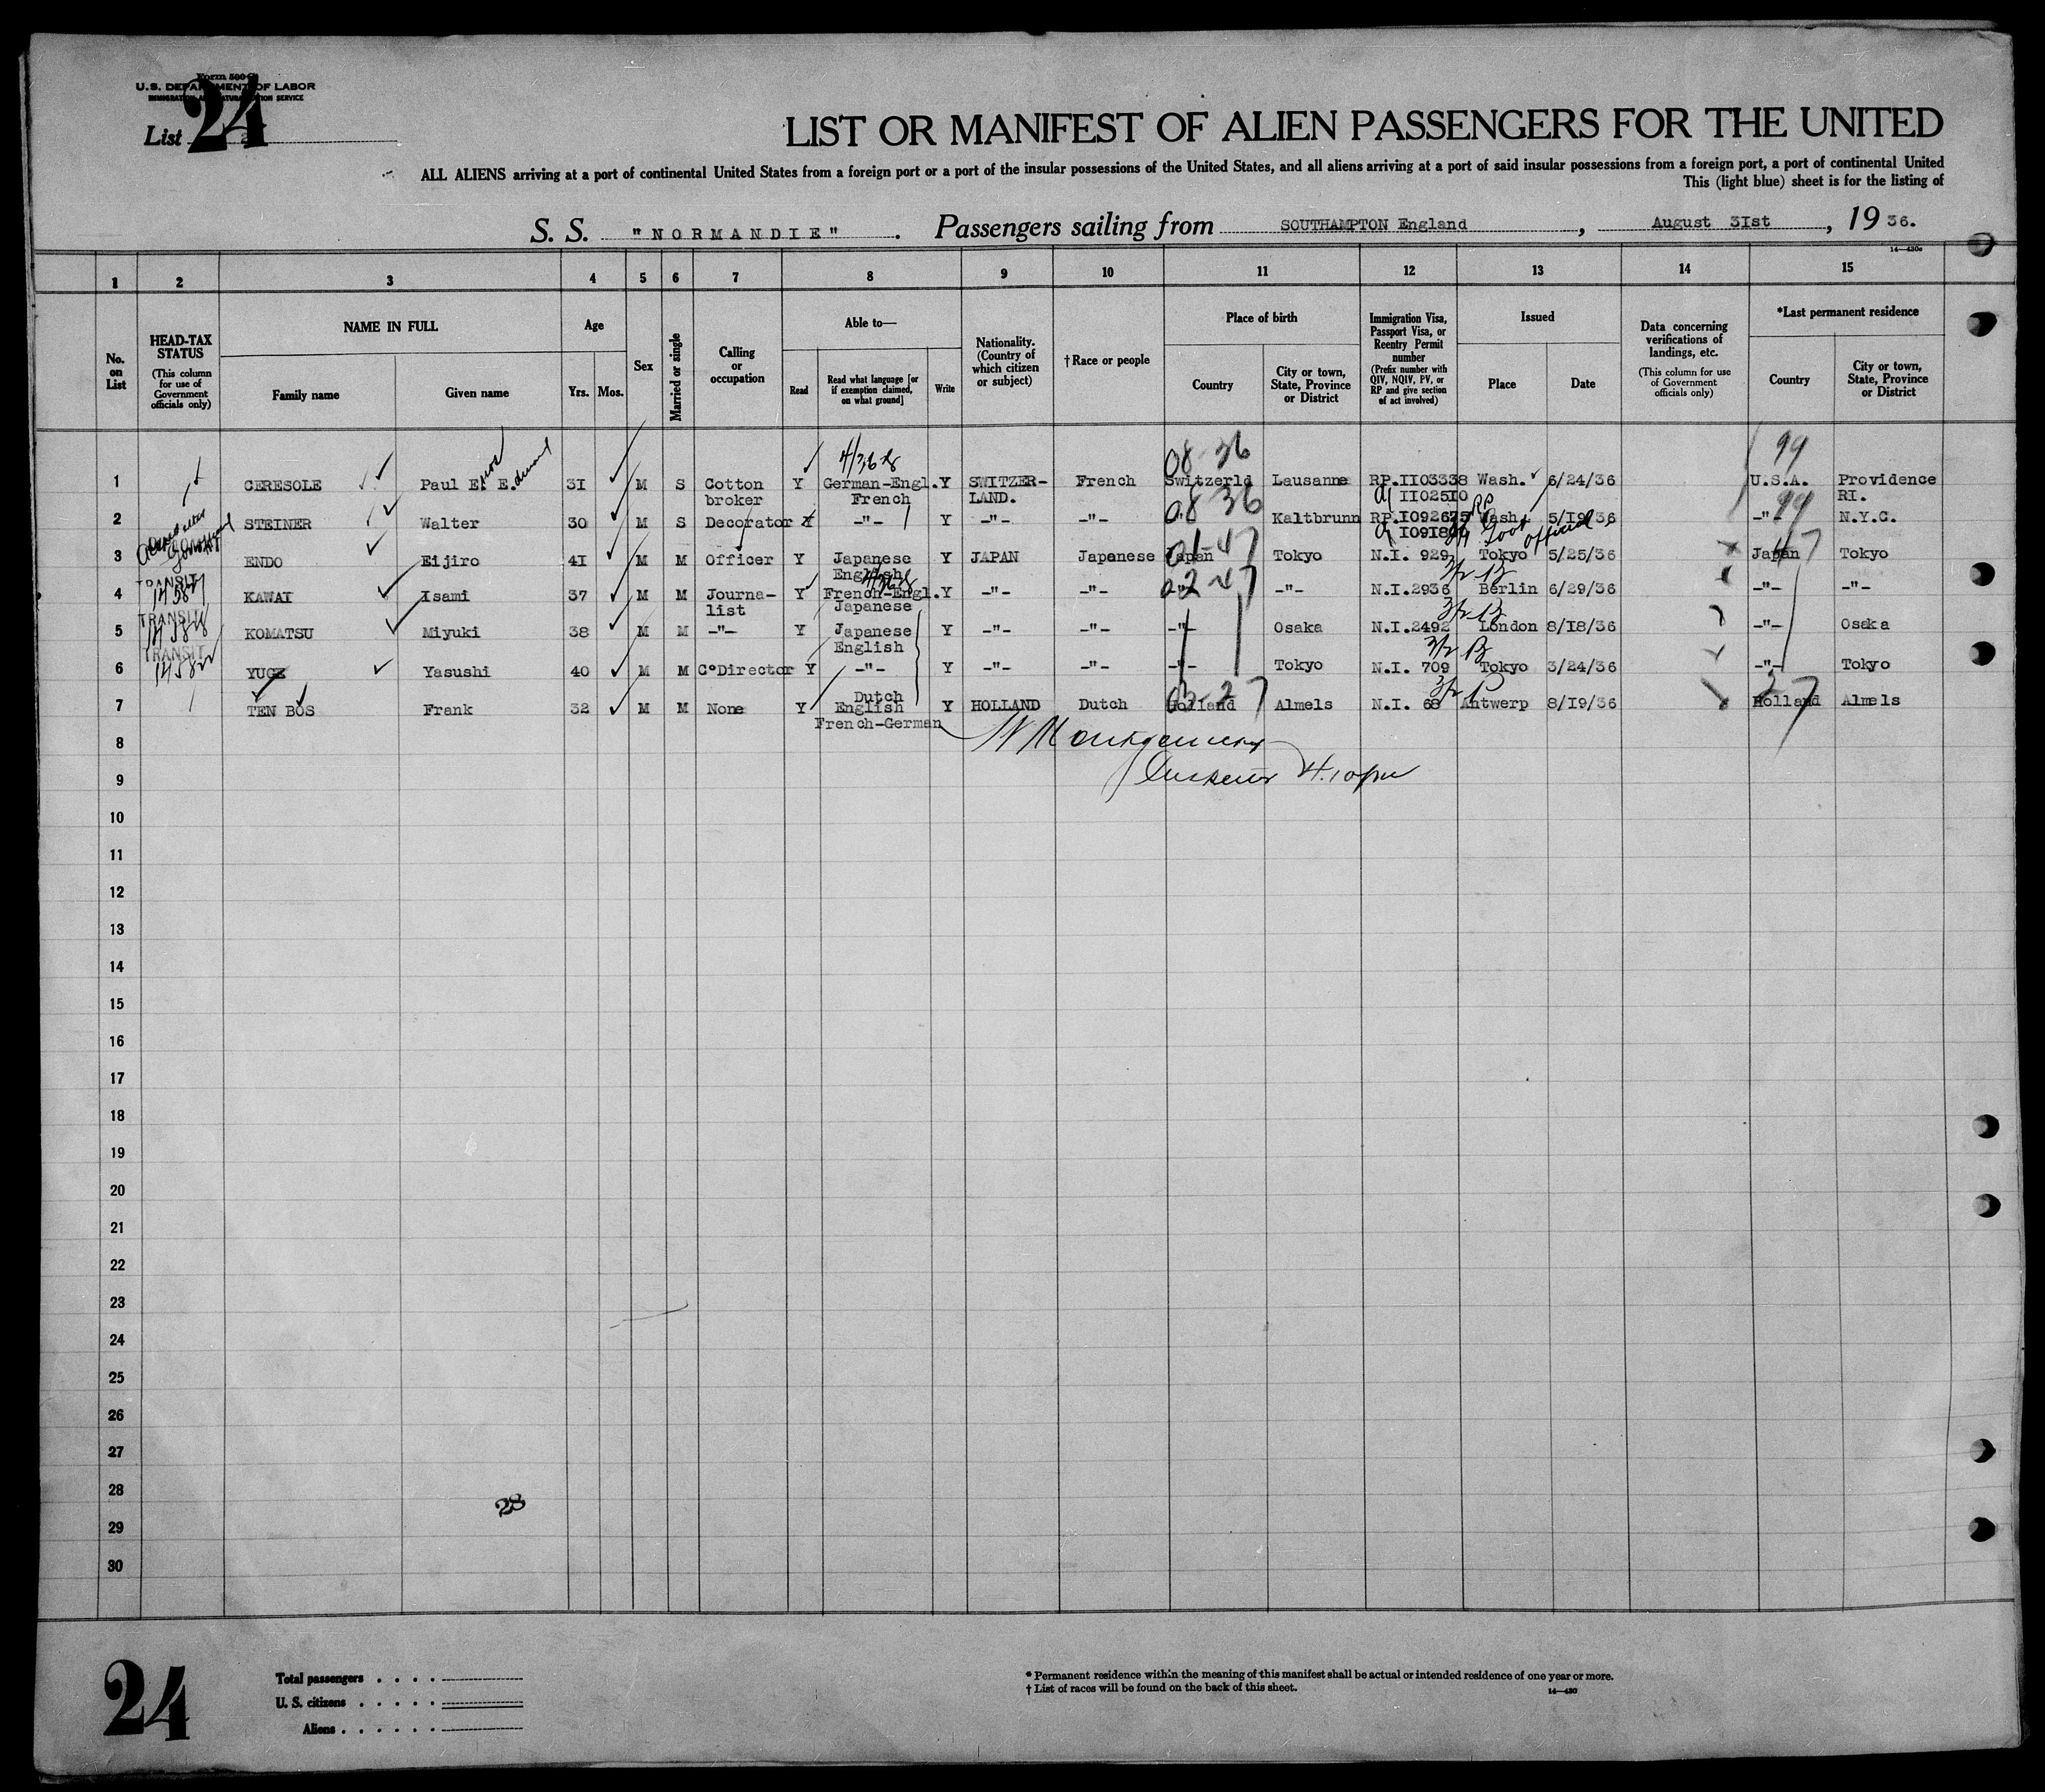 Form 500
U.S. DEPARTMENT OF LABOR
IMMIGRATION AND NATURALIZATION SERVICE
List 24
LIST OR MANIFEST OF ALIEN PASSENGERS FOR THE UNITED
ALL ALIENS arriving at a port of continental United States from a foreign port or a port of the insular possessions of the United States, and all aliens arriving at a port of said insular possessions from a foreign port, a port of continental United
This (light blue) sheet is for the listing of
S. S. "NORMANDIE". Passengers sailing from SOUTHAMPTON England, August 31st, 19 36.
14—430c
1 2 3 4 5 6 7 8 9 10 11 12 13 14 15
No. on List
HEAD-TAX STATUS
(This column for use of Government officials only)
NAME IN FULL
Family name Given name
Age
Yrs. Mos.
Sex
Married or single
Calling or occupation
Able to—
Read
Read what language [or if exemption claimed, on what ground]
Write
Nationality. (Country of which citizen or subject)
†Race or people
Place of birth
Country
City or town, State, Province or District
Immigration Visa, Passport Visa, or Reentry Permit number
(Prefix number with QIV, NQIV, PV, or RP and give section of act involved)
Issued
Place Date
Data concerning verifications of landings, etc.
(This column for use of Government officials only)
*Last permanent residence
Country
City or town, State, Province or District
4/36 08-36 99
1 CERESOLE Paul E. E. 31 M S Cotton Y German-Engl. Y SWITZER- French Switzerld Lausanne RP.1103338 Wash. 6/24/36 U.S.A. Providence
broker French LAND. 1102510 RI.
08 36 RP 99
2 STEINER Walter 30 M S Decorator Y -"- Y -"- -"- Kaltbrunn RP.1092675 Wash. 5/19/36 -"- N.Y.C.
3/1 Govt official
01-47 47
3 ENDO Eijiro 41 M M Officer Y Japanese Y JAPAN Japanese Japan Tokyo N.I. 929 Tokyo 5/25/36 Japan Tokyo
English
TRANSIT
02-47 3/2 B
4 KAWAI Isami 37 M M Journa- Y French-Engl. Y -"- -"- -"- -"- N.I.2936 Berlin 6/29/36 -"- -"-
list Japanese
TRANSIT
3/2 B
5 KOMATSU Miyuki 38 M M -"- Y Japanese Y -"- -"- -"- Osaka N.I.2492 London 8/18/36 -"- Osaka
English
TRANSIT
3/2 B
6 YUGE Yasushi 40 M M C°Director Y -"- Y -"- -"- -"- Tokyo N.I. 709 Tokyo 3/24/36 -"- Tokyo
Dutch 03-27 3/2 P 27
7 TEN BOS Frank 32 M M None Y English Y HOLLAND Dutch Holland Almels N.I. 68 Antwerp 8/19/36 Holland Almels
French-German
8 Montgomery
9 Inspector 4.10 pm
10
11
12
13
14
15
16
17
18
19
20
21
22
23
24
25
26
27
28
28
29
30
24
Total passengers
U. S. citizens
Aliens
* Permanent residence within the meaning of this manifest shall be actual or intended residence of one year or more.
† List of races will be found on the back of this sheet.
14—430